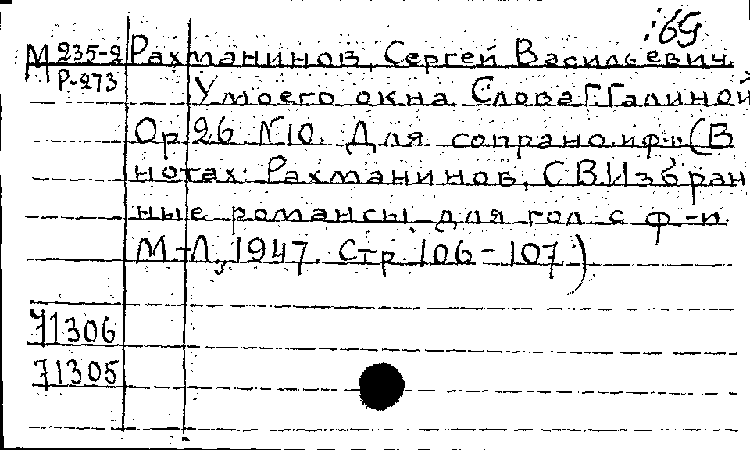 :69
М 235-2 Рахманинов, Сергей Васильевич.
Р-273
У моего окна. Слова Г. Галиной
Ор 26 N10. Для сопрано и ф-п (В
нотах: Рахманинов, С В Избран
ные романсы для гол с ф-п.
М-Л, 1947. Стр 106-107)
71306
71305